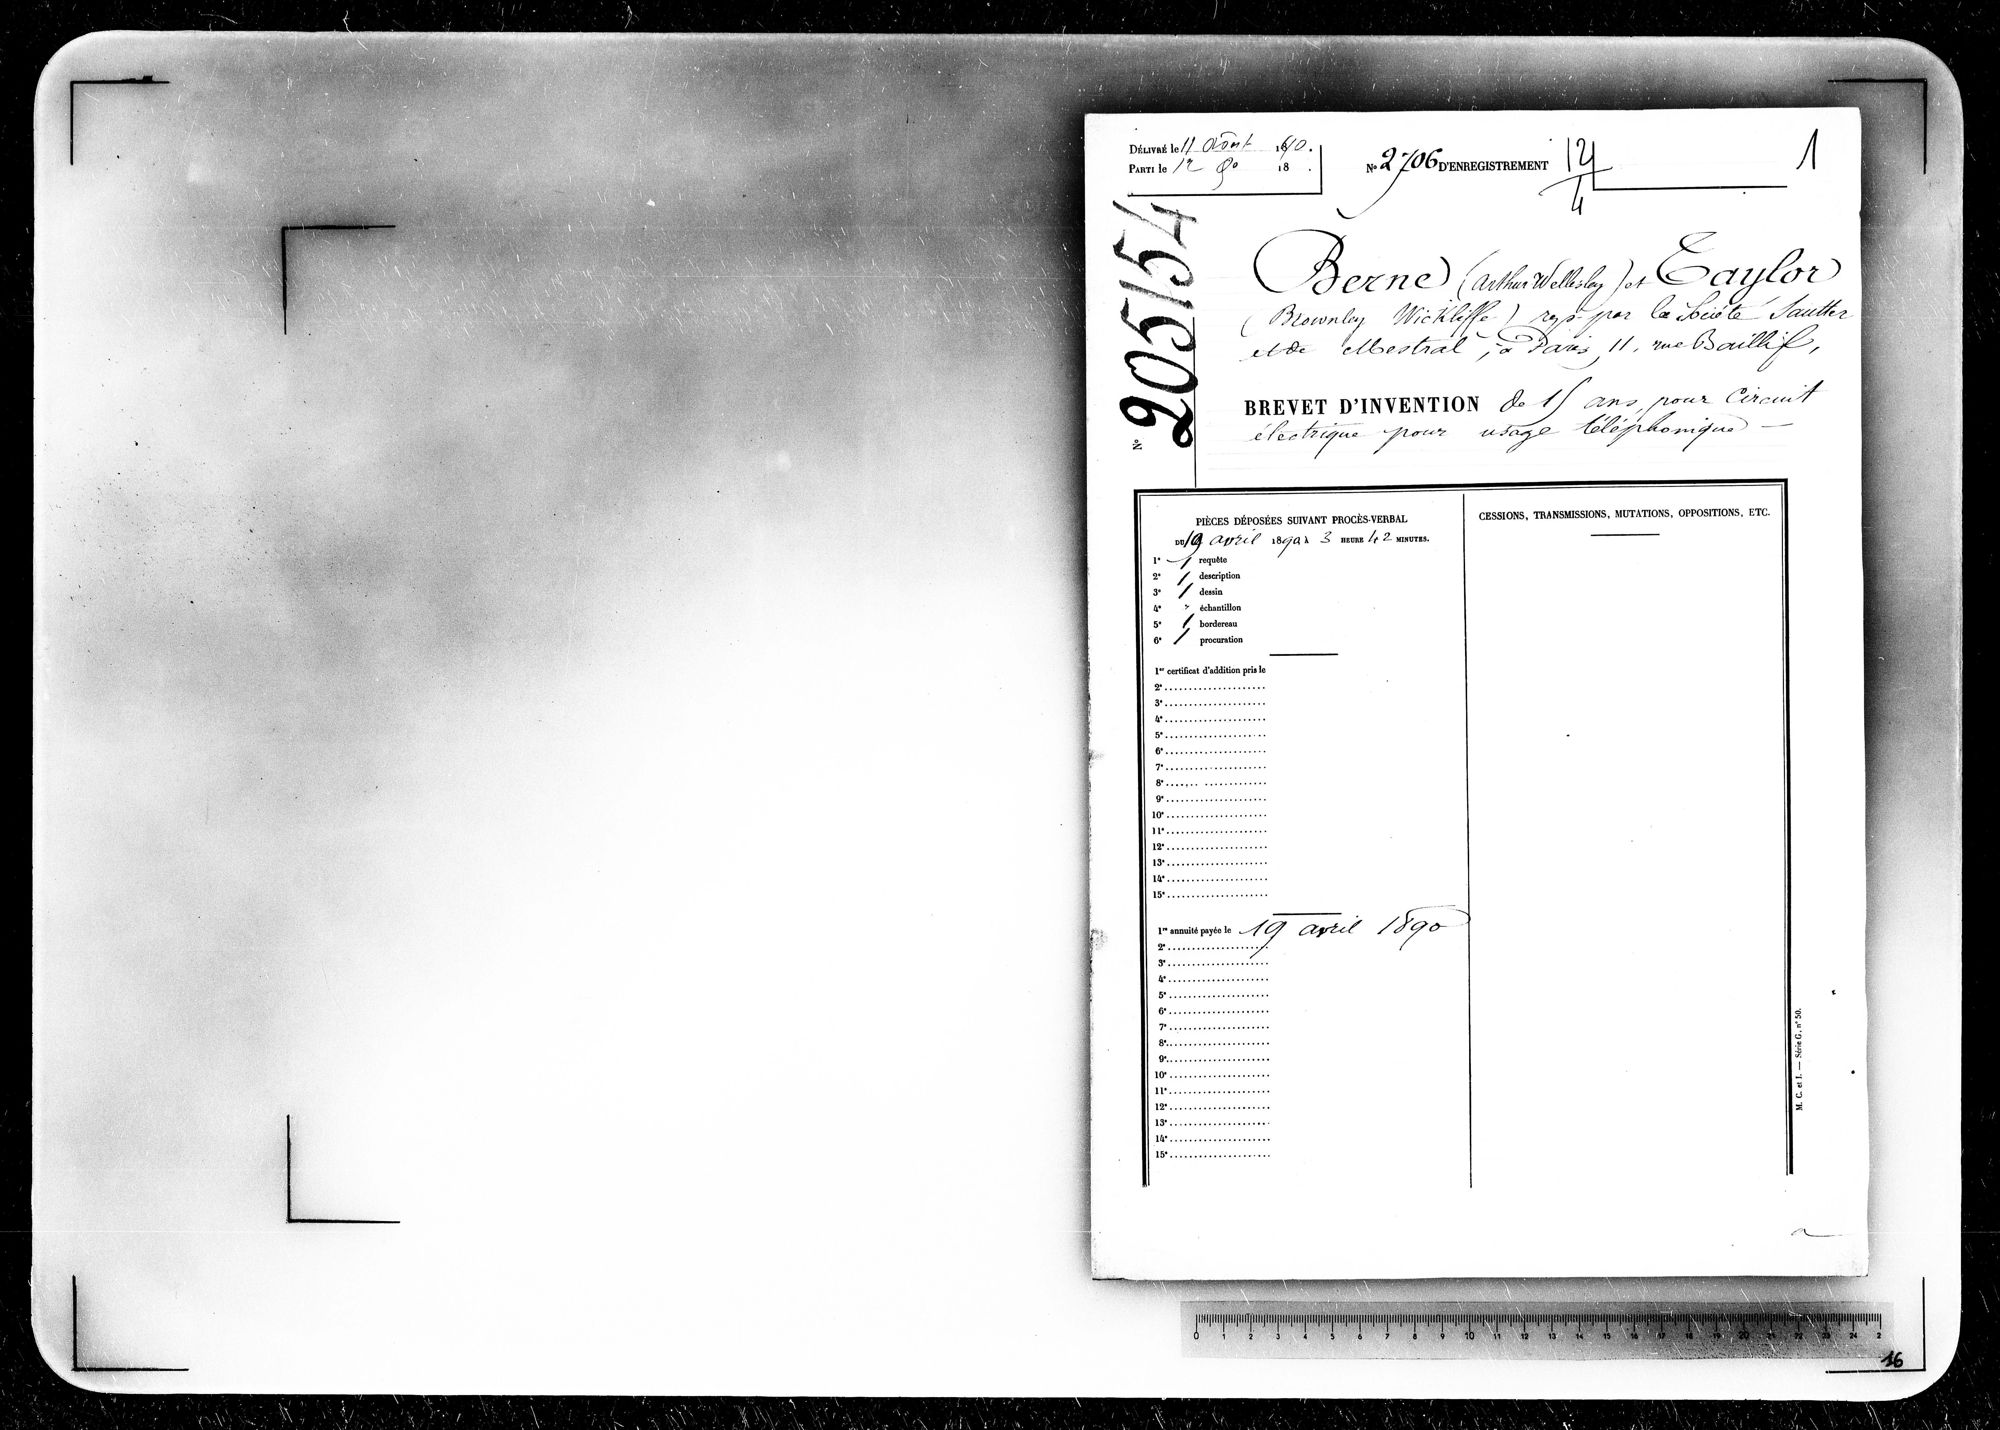 DÉLIVRÉ le 11 Août 1890.
PARTI le 12 do 18 .
No 2706 D'ENREGISTREMENT 12/4
1
No 205154
Berne (Arthur Wellesley) et Taylor
(Brownley Wickliffe) rep. par la Société Sautter
et de Mestral, à Paris, 11, rue Baillif,
BREVET D'INVENTION de 15 ans, pour Circuit
électrique pour usage téléphonique —
PIÈCES DÉPOSÉES SUIVANT PROCÈS-VERBAL
DU 19 avril 1890 à 3 HEURE 42 MINUTES.
1° 1 requête
2° 1 description
3° 1 dessin
4° " échantillon
5° 1 bordereau
6° 1 procuration
1er certificat d'addition pris le
2e
3e
4e
5e
6e
7e
8e
9e
10e
11e
12e
13e
14e
15e
1re annuité payée le 19 avril 1890
2e
3e
4e
5e
6e
7e
8e
9e
10e
11e
12e
13e
14e
15e
CESSIONS, TRANSMISSIONS, MUTATIONS, OPPOSITIONS, ETC.
M. C. et I. — Série G. n° 50.
0 1 2 3 4 5 6 7 8 9 10 11 12 13 14 15 16 17 18 19 20 21 22 23 24 2
16